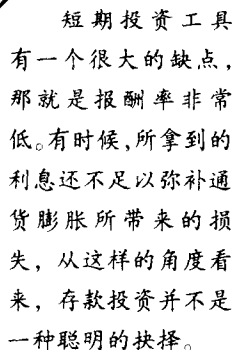 短期投资工具
有一个很大的缺点，
那就是报酬率非常
低。有时候，所拿到的
利息还不足以弥补通
货膨胀所带来的损
失，从这样的角度看
来，存款投资并不是
一种聪明的抉择。